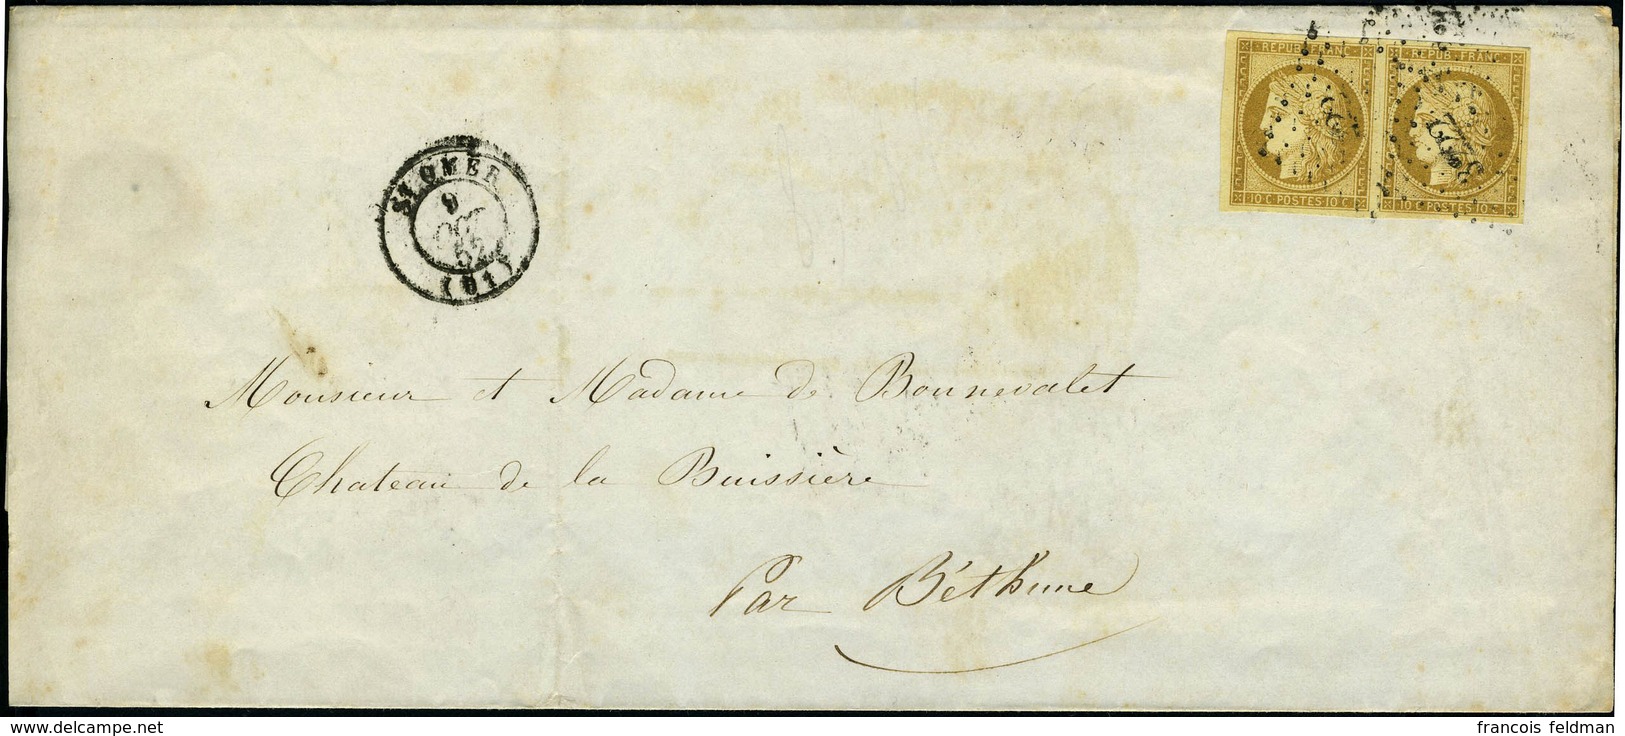 REPUB FRANC
REPUB FRANC
3222
10 C POSTES 10 C
10 C POSTES 10 C
ST OMER
9
OCT
52
(61)
Monsieur et Madame de Bonnevalet
Chateau de la Buissière
Par Béthune
francois feldman
www.delcampe.net